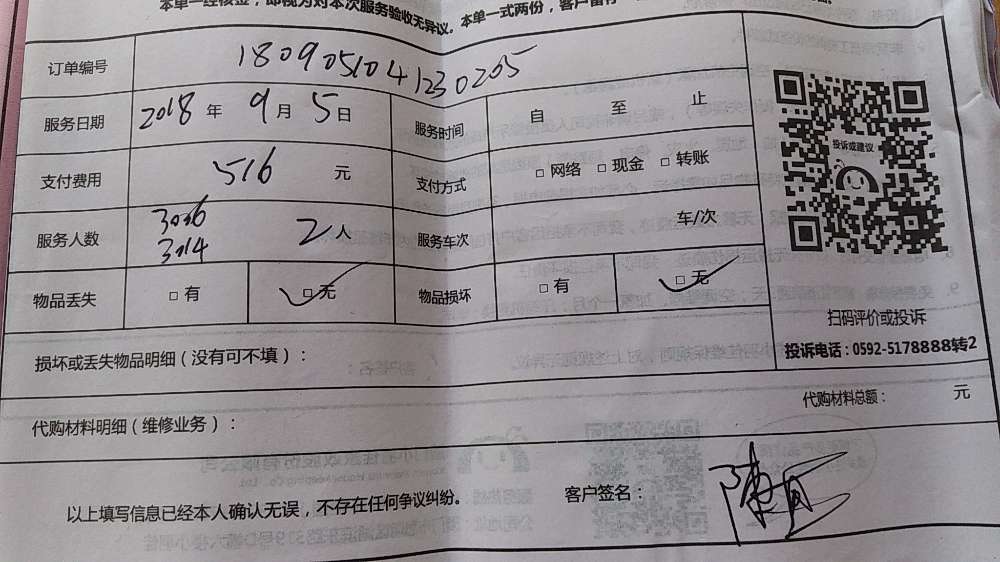 本单一经核签，即视为对本次服务验收无异议。本单一式两份，客户留存
订单编号 1809051041230205
服务日期 2018 年 9 月 5 日 服务时间 自 至 止
支付费用 516 元 支付方式 □ 网络 □ 现金 □ 转账
投诉或建议
服务人数 3036 3014 2 人 服务车次 车/次
物品丢失 □ 有 □ 无 物品损坏 □ 有 □ 无
扫码评价或投诉
投诉电话：0592-5178888转2
损坏或丢失物品明细（没有可不填）：
代购材料明细（维修业务）： 代购材料总额： 元
以上填写信息已经本人确认无误，不存在任何争议纠纷。 客户签名：